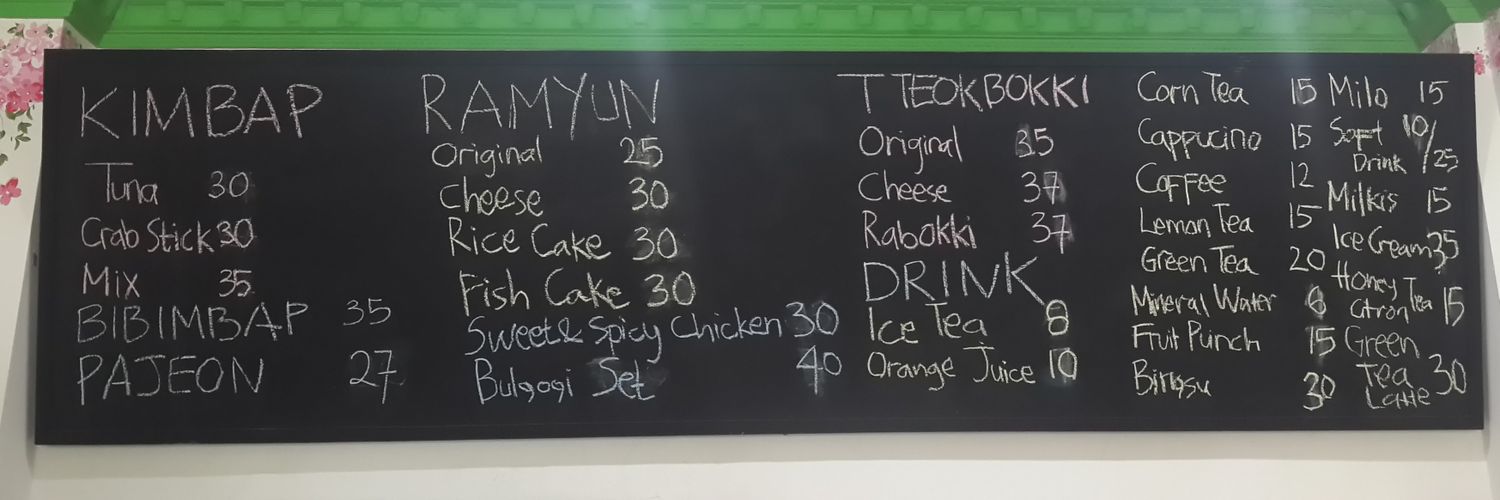 KIMBAP
Tuna 30
Crab Stick 30
Mix 35
BIBIMBAP 35
PAJEON 27
RAMYUN
Original 25
Cheese 30
Rice Cake 30
Fish Cake 30
Sweet & Spicy Chicken 30
Bulgogi Set 40
TTEOKBOKKI
Original 35
Cheese 37
Rabokki 37
DRINK
Ice Tea 8
Orange Juice 10
Corn Tea 15
Cappucino 15
Coffee 12
Lemon Tea 15
Green Tea 20
Mineral Water 6
Fruit Punch 15
Bingsu 30
Milo 15
Soft 10/
Drink 25
Milkis 15
Ice Cream 35
Honey
Citron Tea 15
Green
Tea 30
Latte